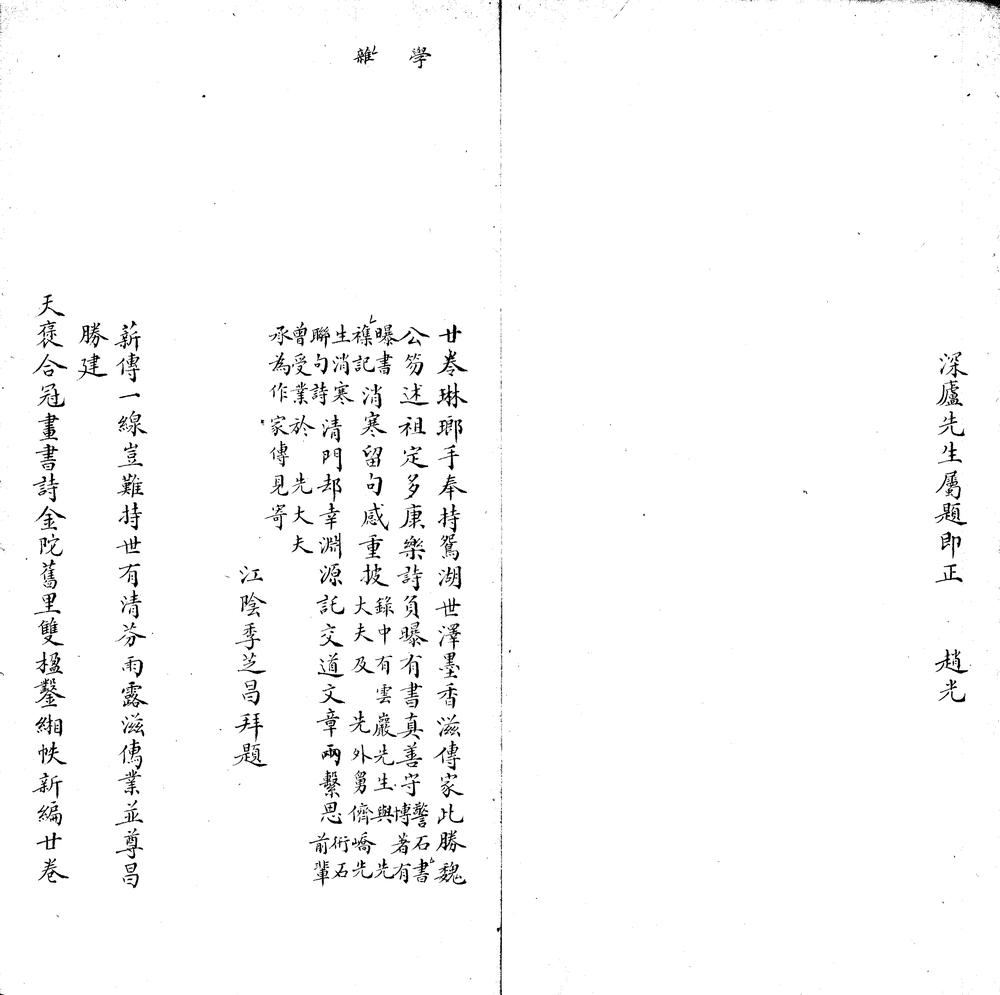 深廬先生屬題即正　趙光
學
雜
廿卷琳瑯手奉持鴛湖世澤墨香滋傳家此勝魏
公笏述祖定多康樂詩負曝有書真善守警石書博著有
曝書襍記消寒留句感重披錄中有雲巖先生與先大夫及　先外舅儕嶠先
生消寒聯句詩清門却幸淵源託交道文章兩繫思衎石前輩
曾受業於　先大夫承為作家傳見寄
江陰季芝昌拜題
薪傳一線豈難持世有清芬雨露滋傳業並尊昌
勝建
天褒合冠畫書詩金陀舊里雙楹鑿緗帙新編廿卷